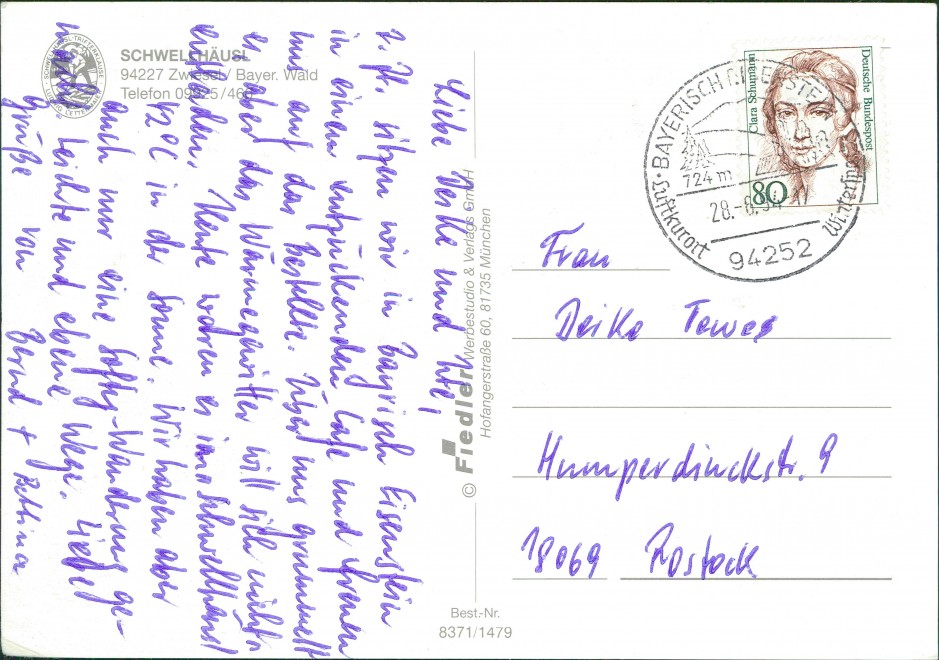 SCHWELLHÄUSL
94227 Zwiesel / Bayer. Wald
Telefon 09925/460
SCHWELLHÄUSL-TRIFTERKLAUSE
Liebe Deike und Ute,
z. Zt. sitzen wir in Bayrisch Eisenstein
in einem entzückenden Cafe und freuen
uns auf das Bestellte. Über uns grummelt
es, aber das Wärmegewitter will sich nicht
entladen. Heute waren es im Schwellhäusl
42°C in der Sonne. Wir haben aber
auch nur eine Softy-Wanderung ge-
macht, leichte und ebene Wege. Liebe
Grüße von Bernd + Bettina
© Fiedler Werbestudio & Verlags GmbH
Hofangerstraße 60, 81735 München
Best.-Nr.
8371/1479
Clara Schumann
Deutsche Bundespost
80
BAYERISCH EISENSTEIN
724 m
28.-6.94
Luftkurort
Wintersport
94252
Frau
Deike Tewes
Humperdinckstr. 9
18069 Rostock